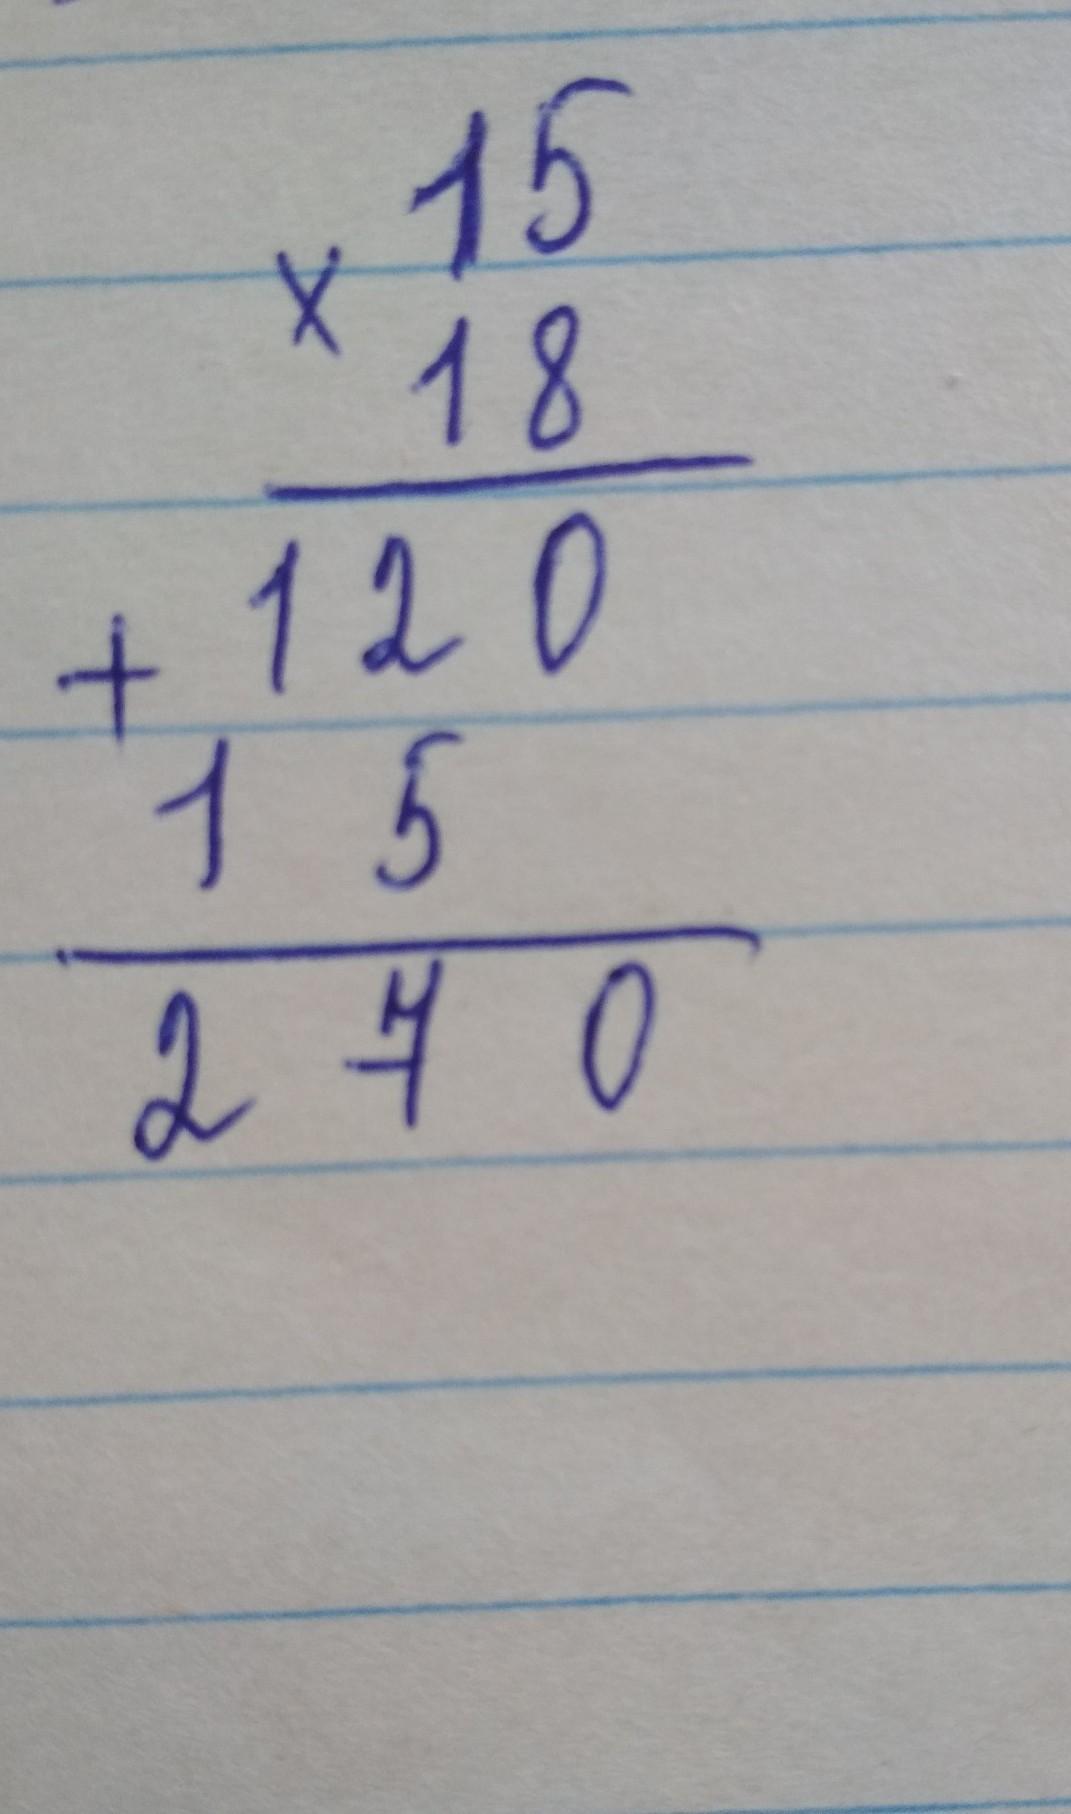 15
x
18
120
+
15
270